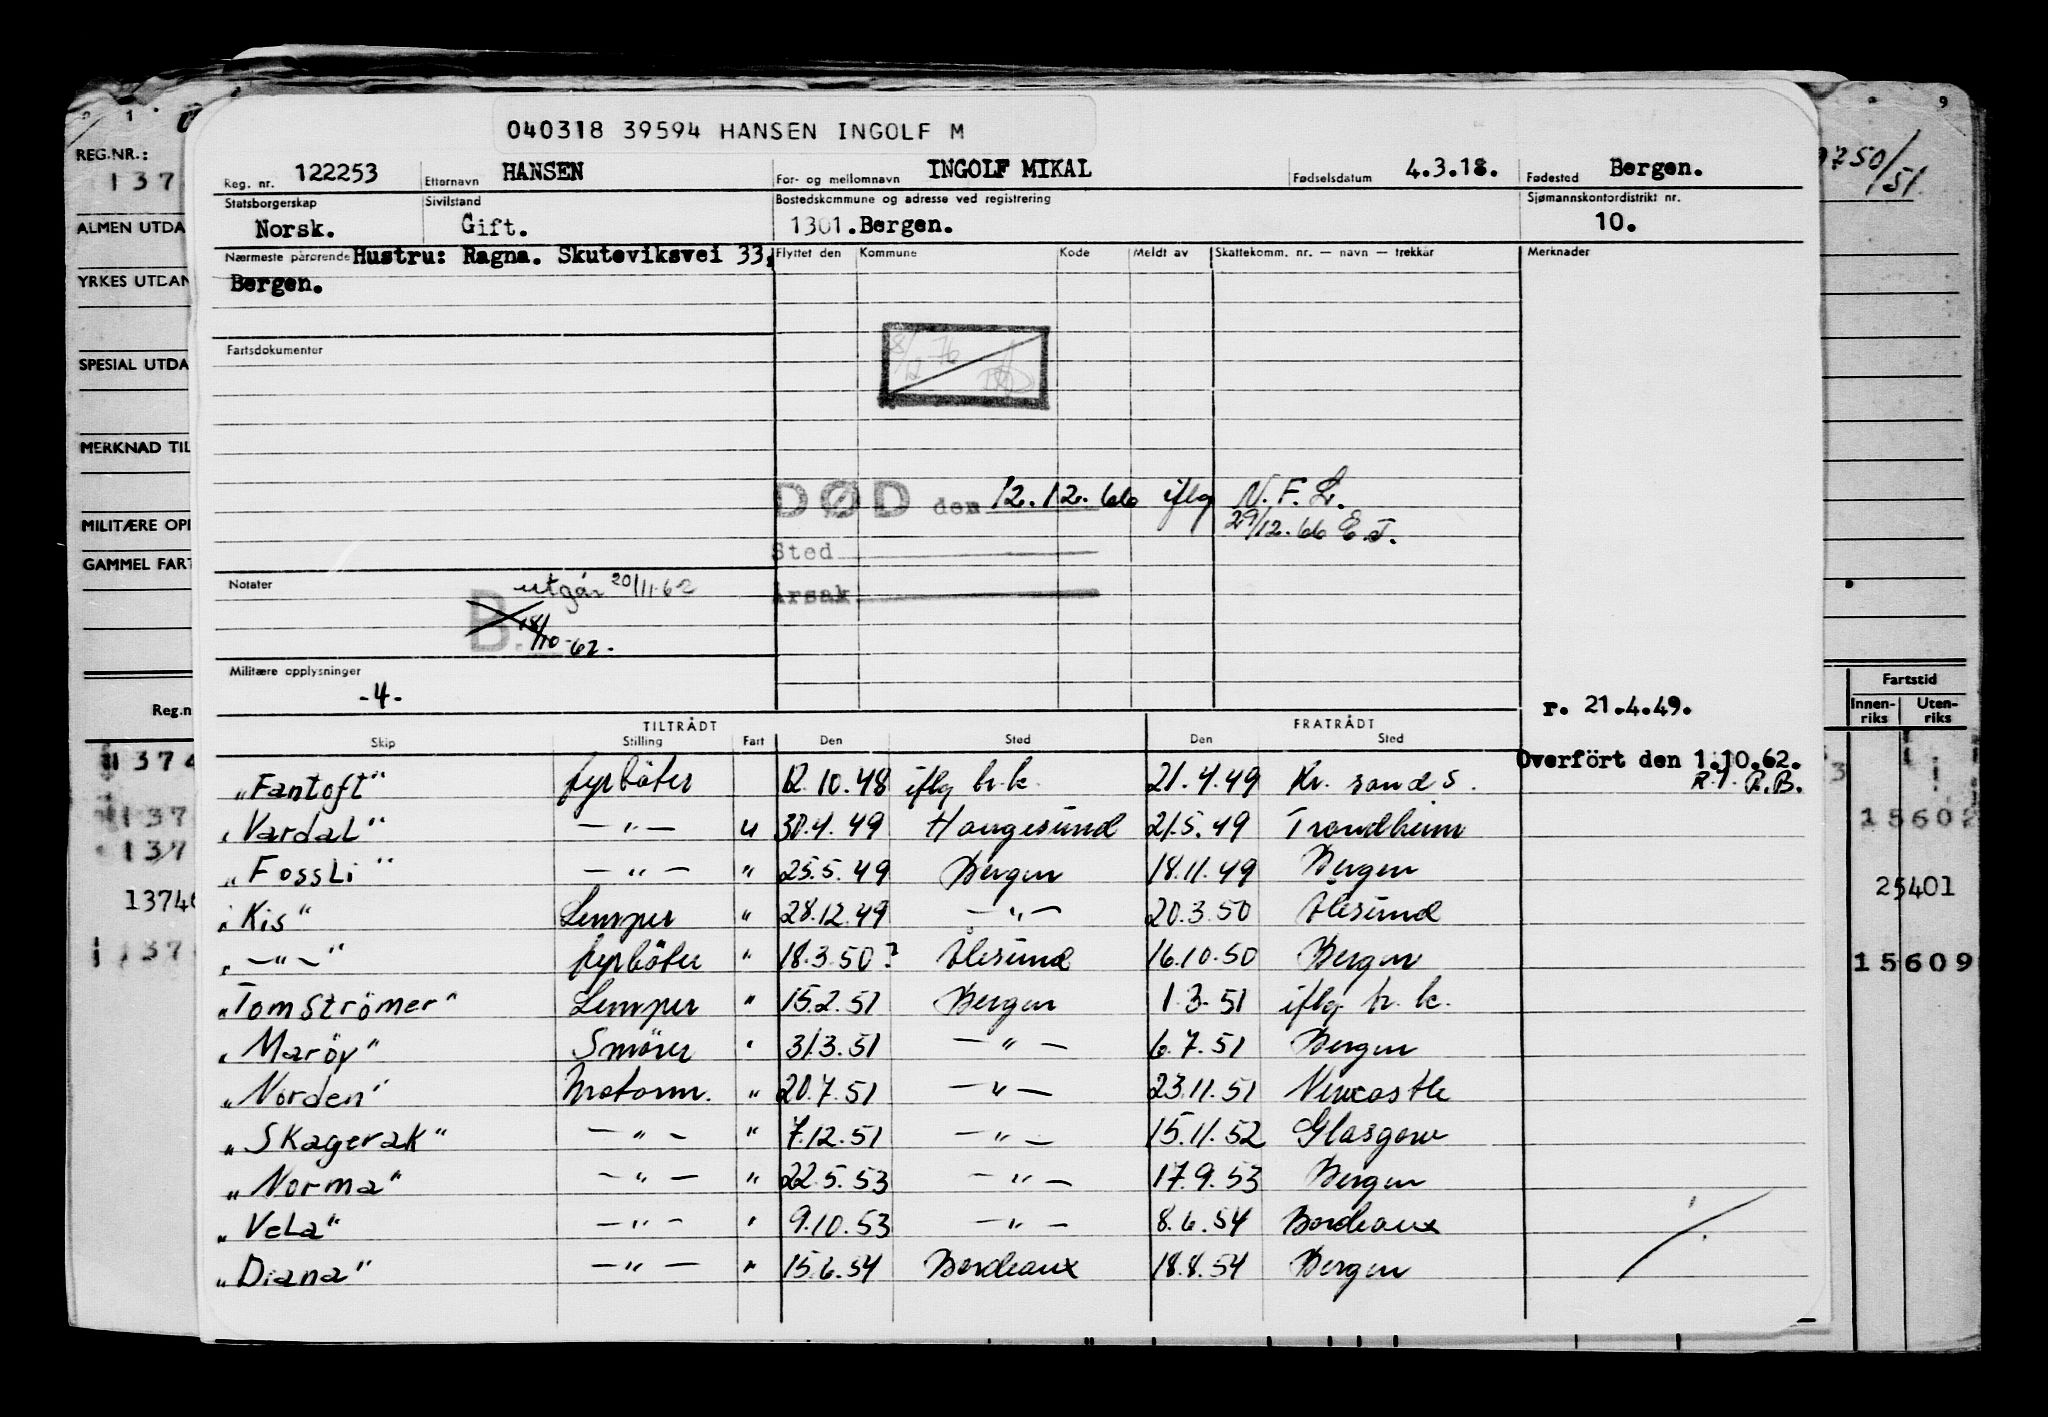 040318 39594 HANSEN INGOLF M
Reg. nr. 122253 Etternavn HANSEN For- og mellomnavn INGOLF MIKAL Fødselsdatum 4.3.18. Fødested Bergen.
Statsborgerskap Norsk. Sivilstand Gift. Bostedskommune og adresse ved registrering 1301.Bergen. Sjømannskontordistrikt nr. 10.
Nærmeste pårørende Hustru: Ragna. Skuteviksvei 33, Flyttet den Kommune Kode Meldt av Skattekomm. nr. — navn — trekkår Merknader
Bergen.
Fartsdokumenter
DØD den 12.12.66 iflg N.F.L.
29/12.66 E.J.
Sted
Årsak
Notater
utgår 20/11-62
B. 18/10-62.
Militære opplysninger
-4-
r. 21.4.49.
TILTRÅDT FRATRÅDT
Skip Stilling Fart Den Sted Den Sted
Overført den 1.10.62.
R.T. R.B.
„Fantoft" fyrböter 12.10.48 iflg h.k. 21.4.49 Kr. sand S.
„Vardal" —"— u 30.4.49 Haugesund 21.5.49 Trondheim
„Fossli" —"— " 25.5.49 Bergen 18.11.49 Bergen
„Kis" Lemper " 28.12.49 —"— 20.3.50 Ålesund
„—"—" fyrböter " 18.3.50? Ålesund 16.10.50 Bergen
„Tom Strömer" Lemper " 15.2.51 Bergen 1.3.51 iflg h.k.
„Maröy" Smörer " 31.3.51 —"— 6.7.51 Bergen
„Norden" Motorm. " 20.7.51 —"— 23.11.51 Newcastle
„Skagerak" —"— " 7.12.51 —"— 15.11.52 Glasgow
„Norma" —"— " 22.5.53 —"— 17.9.53 Bergen
„Vela" —"— " 9.10.53 —"— 8.6.54 Bordeaux
„Diana" —"— " 15.6.54 Bordeaux 18.8.54 Bergen
REG.NR.:
137
ALMEN UTDA
YRKES UTDAN
SPESIAL UTDA
MERKNAD TIL
MILITÆRE OPP
GAMMEL FART
Reg.n
1374
137
137
13746
137
9
750/51
Fartstid
Innen-riks Uten-riks
15602
25401
15609